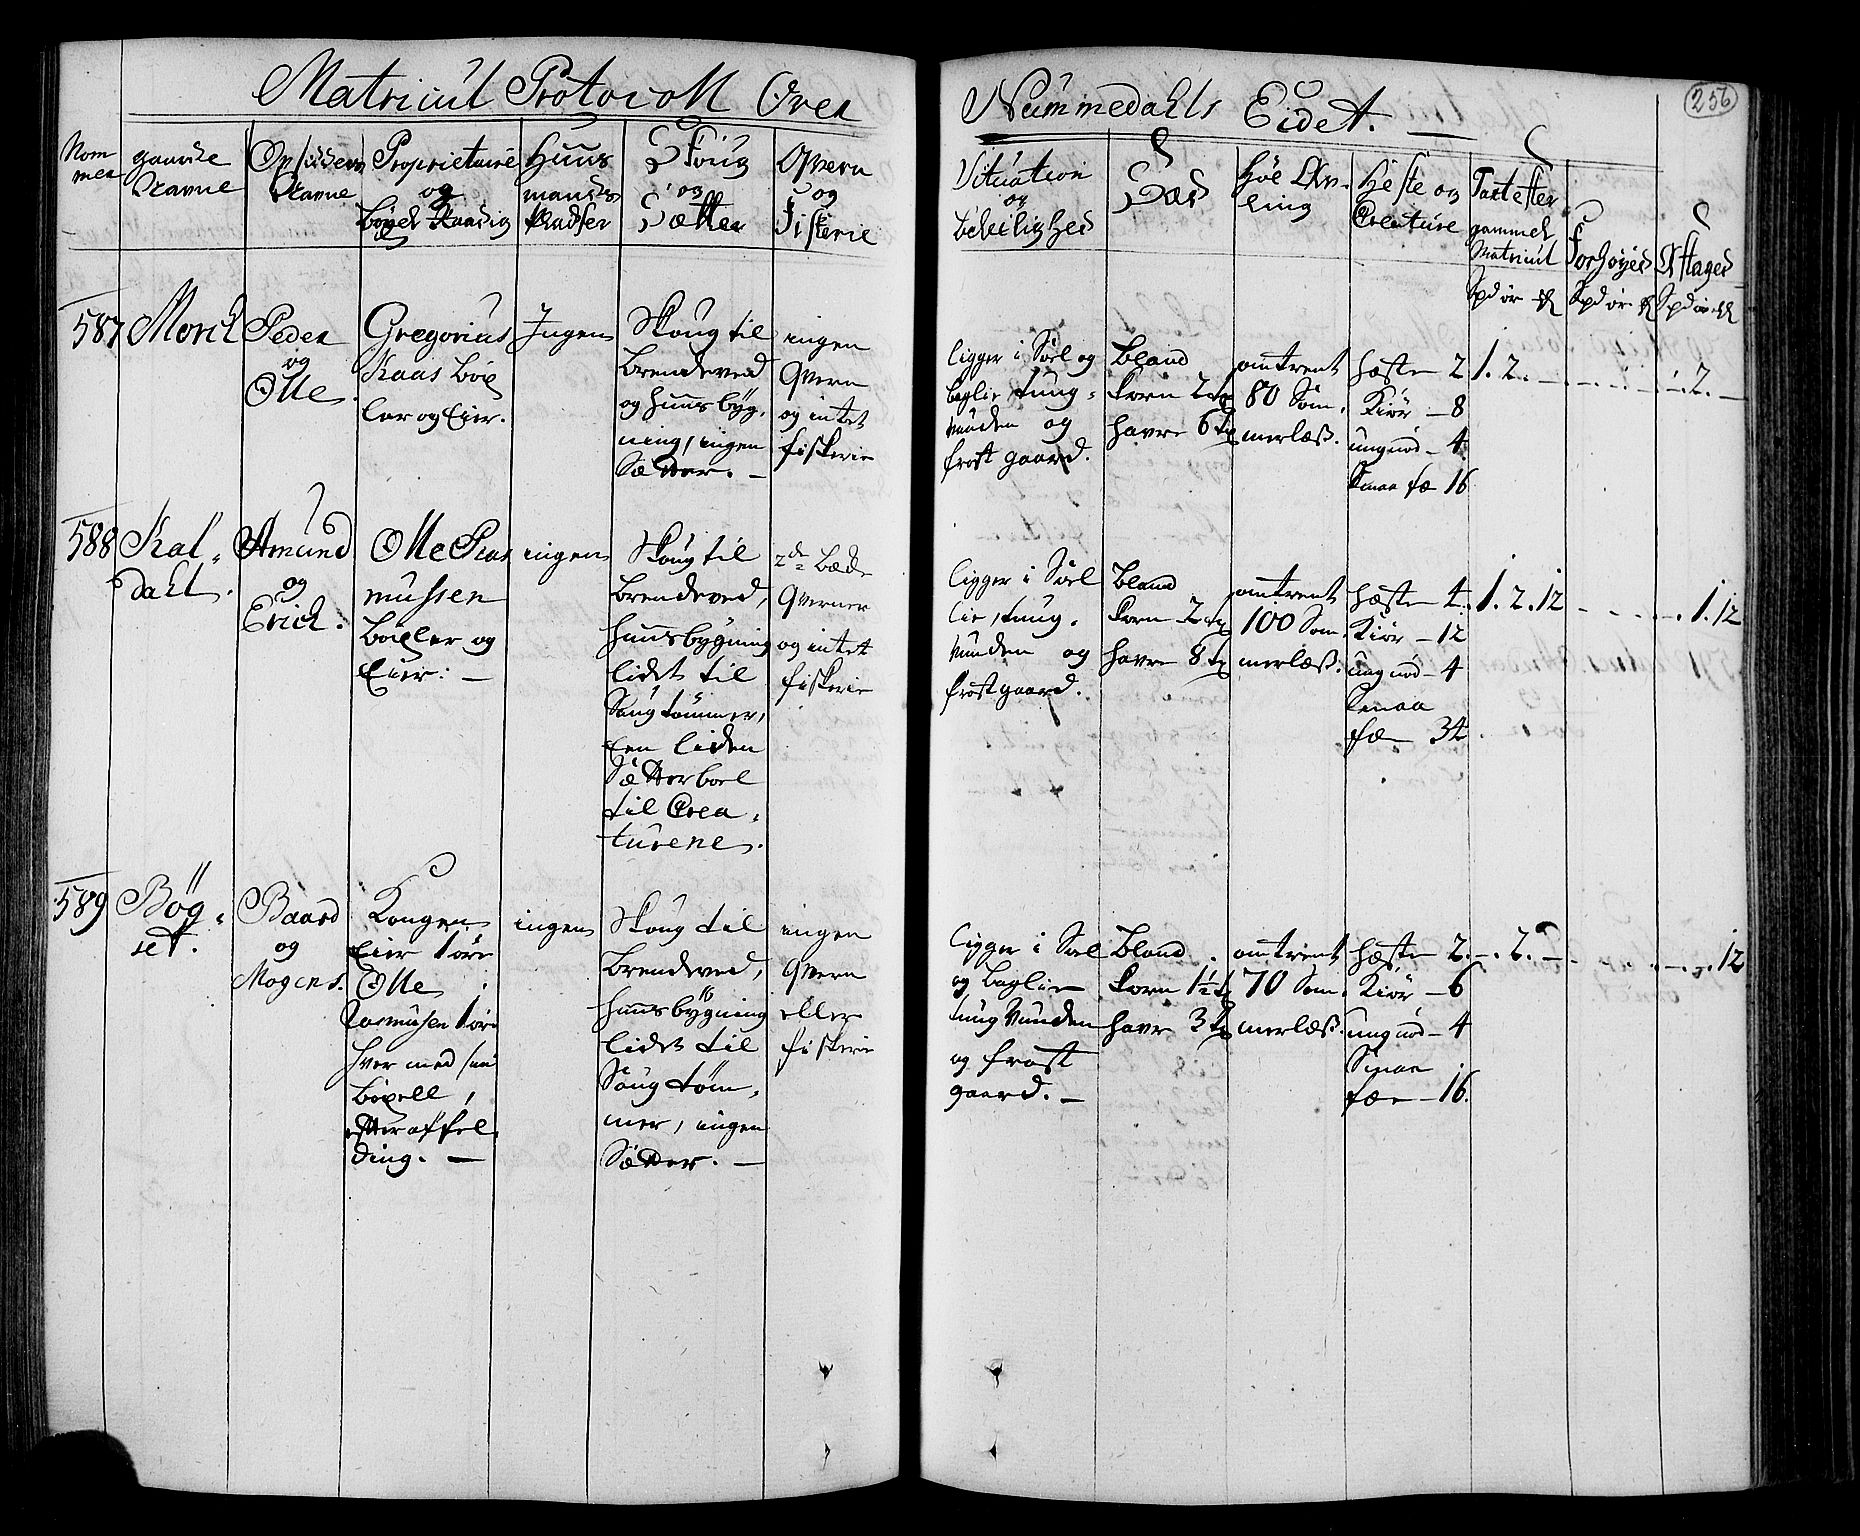 Matricul Protocoll Over
Nummedahls Eidet.
256
Nom
mer
gaarde
Navne
Opsidders
Navne
Proprietaire
og
Böxel Raadig
Huus
mands
Pladser
Skoug
og
Sætter
Qvern
og
Fiskerie
Situation
og
Beleilighed
Sæd
Höe Av-
ling
Heste og
Creature
Taxt efter
gammel
Matricul
Forhøyed
Aftaged
Spd ör
Spd ör
Spd ör
587
Morch
Peder
og
Olle.
Gregorius
Kaas böx
ler og Eier.
Ingen
Skoug til
brendeved
og huusbÿg,
ning, ingen
Sætter. –
ingen
qvern
og intet
fiskerie
ligger i Soel og
baglie, tung,
vunden og
frost gaard.
bland
korn 2 tr
havre 6 tr
omtrent
80 Som,
merlæs.
heste 2
Kiör – 8
ungnöd – 4
Smaa fæ 16
1. 2. –
2. –
588
Kal,
dahl.
Amund
og
Erich.
Olle Ras
mussen
böxler og
Eier. –
ingen
Skoug til
brendeved,
huusbygning
lidet til
Saug tömmer,
een liden
Sætterboel
til Crea,
turene.
2de bæde
qverner
og intet
fiskerie
ligger i Soel
lie, tung,
vunden og
frostgaard.
bland
korn 2 tr
havre 8 tr
omtrent
100 Som,
merlæs.
heste 4.
Kiör – 12
ungnöd – 4
Smaa
fæ – 34
1. 2. 12
1. 12
589
Bög,
set.
Baard
og
Mogens.
Kongen
Eier 1 öre
Olle
Rasmusen 1 öre
hver med sin
böxell,
efter affel,
ding. –
ingen
Skoug til
brendeved,
huusbÿgning
lidet til
Saug töm,
mer, ingen
Sætter. –
ingen
qvern
eller
fiskerie
ligger i Soel
og baglie
tung vunden
og frost
gaard. –
bland
korn 1½ tr
havre 3 tr
omtrent
70 Som,
merlæs.
heste 2.
Kiör – 6
ungnöd – 4
Smaa
fæe – 16.
– 2. –
12